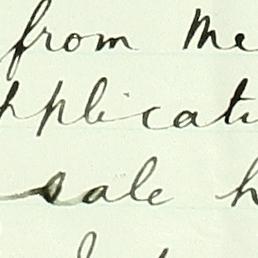 from Me
pplicati
sale h